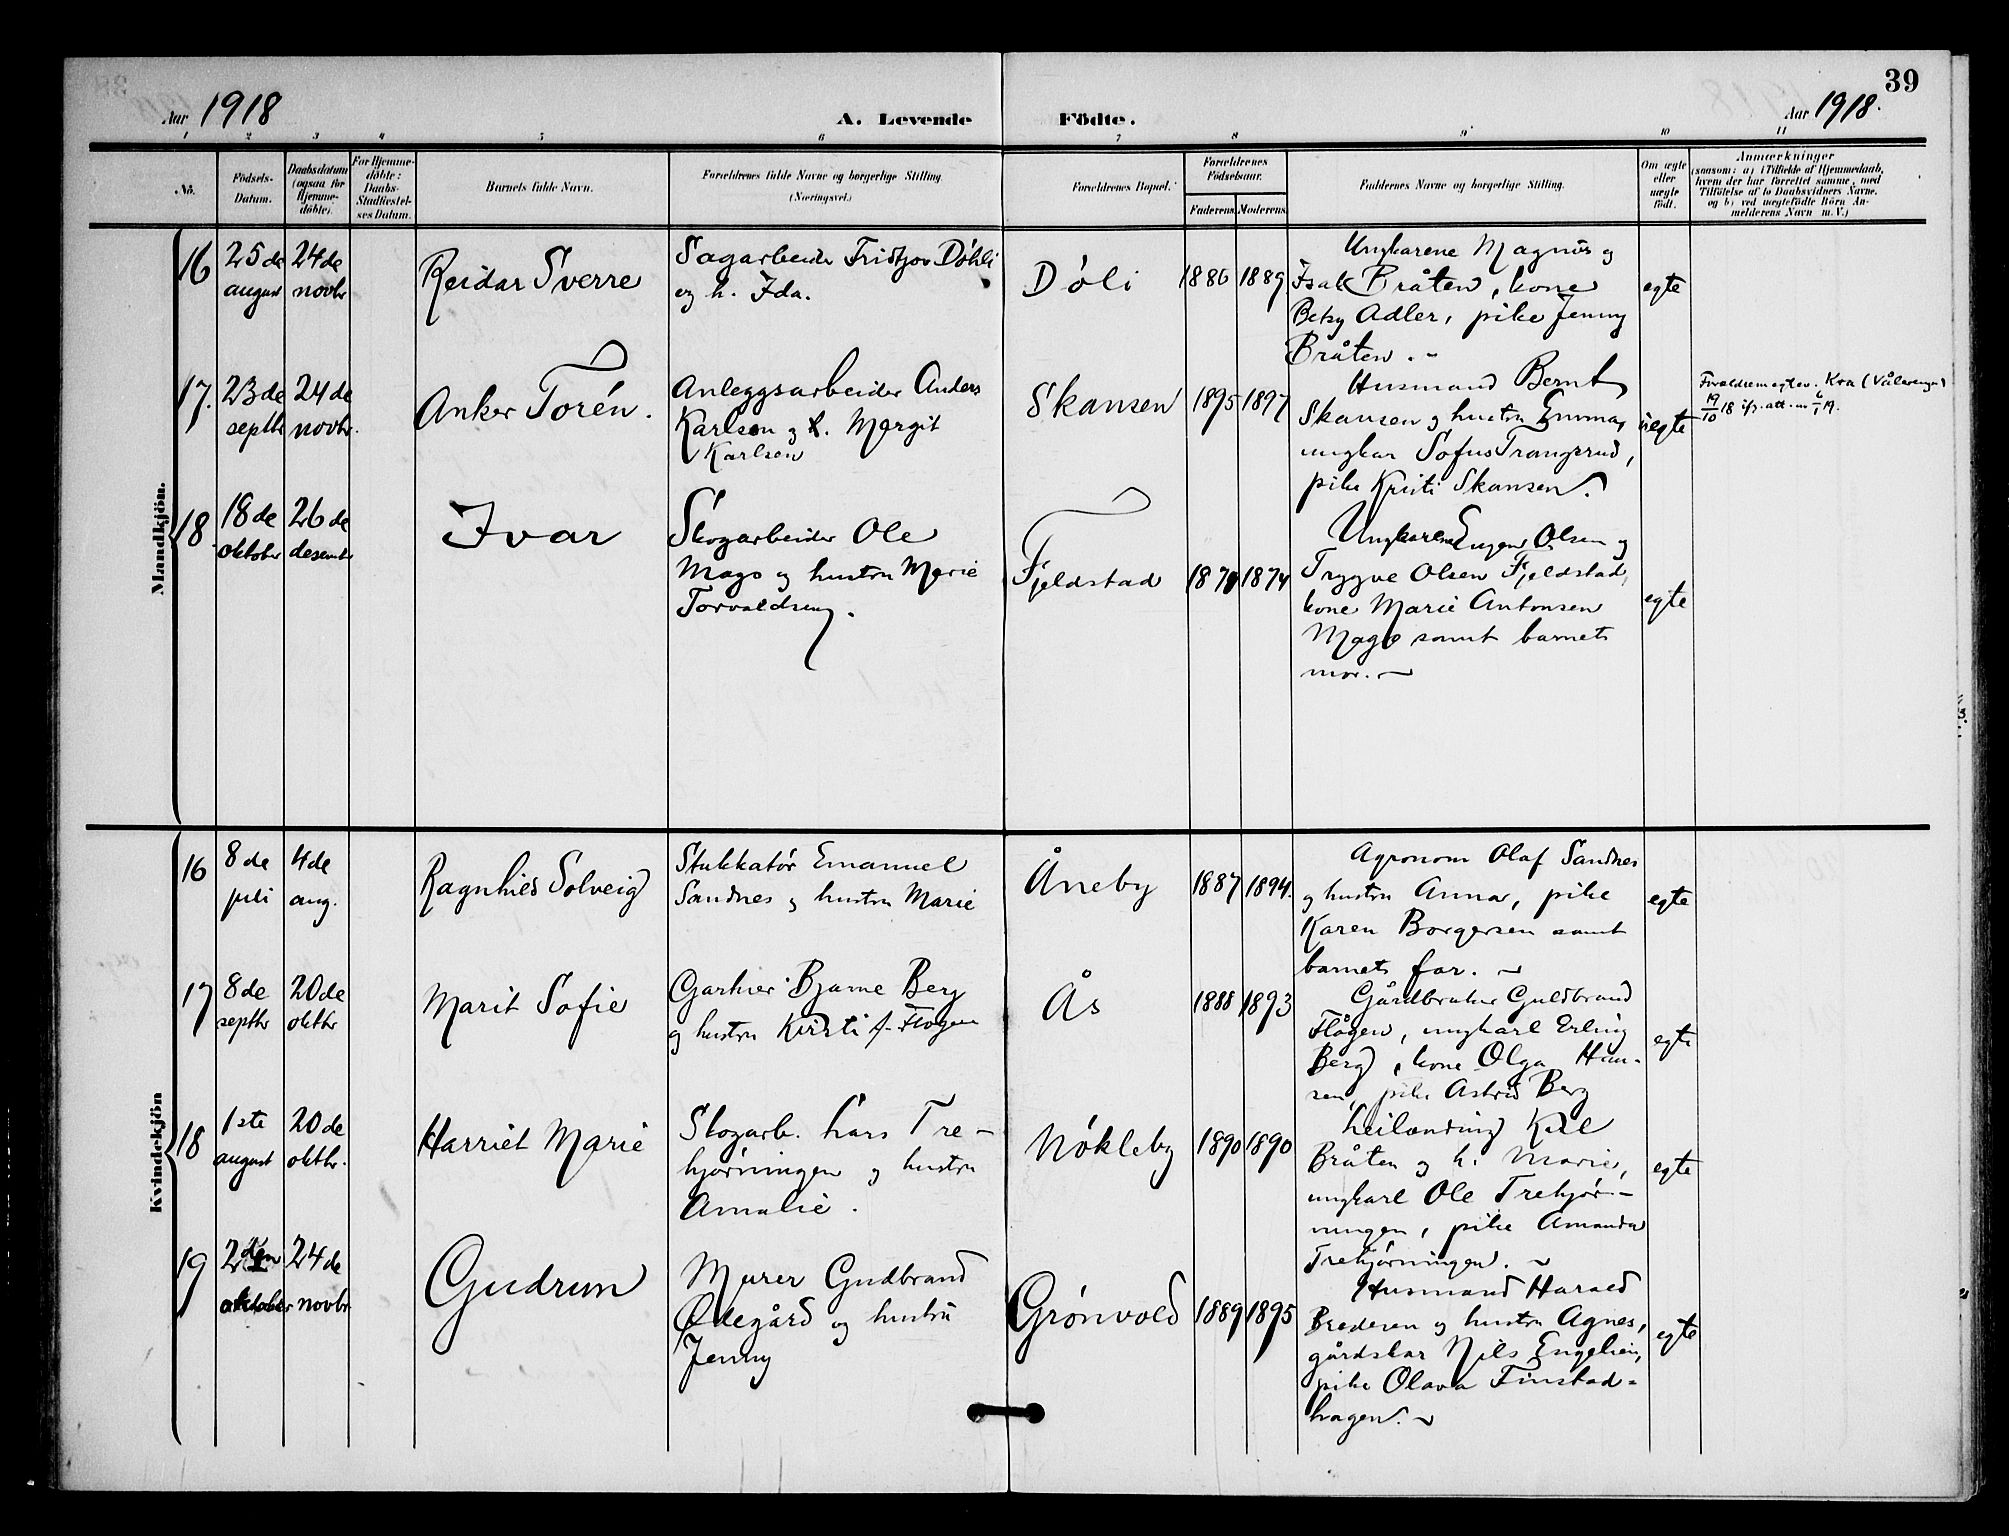 39
Aar 1918
A. Levende Födte.
Aar 1918.
1 2 3 4 5 6 7 8 9 10 11
No.
Födsels-
Datum.
Daabsdatum
(ogsaa for
Hjemme-
döbte).
For Hjemme-
döbte:
Daabs-
Stadfæstel-
ses Datum.
Barnets fulde Navn.
Forældrenes fulde Navne og borgerlige Stilling.
(Næringsvei.)
Forældrenes Bopæl.
Forældrenes
Födselsaar.
Faderens. Moderens.
Faddernes Navne og borgerlige Stilling.
Om ægte
eller
uægte
födt.
Anmærkninger
(saasom: a) i Tilfælde af Hjemmedaab,
hvem der har forrettet samme, med
Tilföielse af to Daabsvidners Navne,
og b) ved uægtefödte Börn An-
melderens Navn m. V.)
Mandkjön.
16
25de
august
24de
novbr
Reidar Sverre
Sagarbeider Fridtjov Döhli
og h. Ida.
Döli
1886
1889
Ungkarene Magnus og
Isak Bråten, kone
Betsy Adler, pike Jenny
Bråten. -
egte
17.
23de
septbr
24de
novbr.
Anker Torén.
Anleggsarbeider Anders
Karlsen og h. Margit
Karlsen
Skansen
1895
1897
Husmand Bernt
Skansen og hustru Emma,
ungkar Sofus Trangsrud,
pike Kristi Skansen.
uegte
Forældrene egtev. Kra (Vålerengen)
19/10 18 ifg. att. av 6/1 19.
18.
18de
oktober
26de
desembr
Ivar
Skogarbeider Ole
Mago og hustru Marie
Torvaldsen.
Fjeldstad
1874
Ungkarene Eugen Olsen og
Trygve Olsen Fjeldstad,
kone Marie Antonsen
Mago samt barnets
mor. -
egte
Kvindekjön
16
8de
juli
4de
aug.
Ragnhild Solveig
Stukkatör Emanuel
Sandnes og hustru Marie
Åneby
1887
1894.
Agronom Olaf Sandnes
og hustru Anna, pike
Karen Borgersen samt
barnets far. -
egte
17
8de
septbr
20de
oktbr
Marit Sofie
Gartner Bjarne Berg
og hustru Kirsti f. Flogen
Ås
1888
1893
Gårdbruker Guldbrand
Flågen, ungkarl Erling
Berg, kone Olga Han-
sen, pike Astrid Berg
egte
18
1ste
august
20de
oktbr.
Harriet Marie
Skogarb. Lars Tre-
hjörningen og hustru
Amalie.
Nökleby
1890
1890
Leilending Karl
Bråten og h. Marie,
ungkarl Ole Trehjör-
ningen, pike Amanda
Trehjörningen. -
egte
19
2den
oktober
24de
novbr.
Gudrun
Murer Gudbrand
Ödegård og hustru
Jenny
Grönvold
1889
1895
Husmand Harald
Brederen og hustru Agnes,
gårdskar Nils Engelien,
pike Olava Finstad-
hagen. -
egte